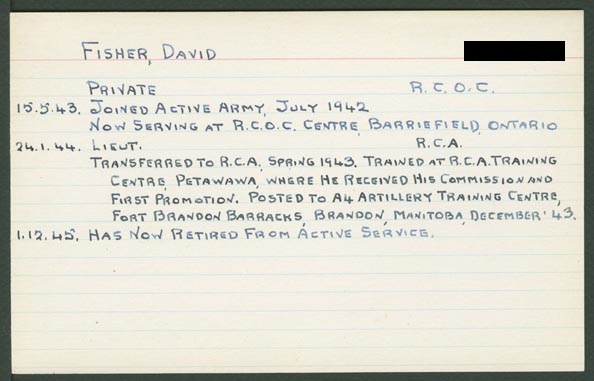 FISHER, DAVID
PRIVATE R.C.O.C.
15.5.43. JOINED ACTIVE ARMY, JULY 1942
NOW SERVING AT R.C.O.C. CENTRE, BARRIEFIELD, ONTARIO
24.1.44. LIEUT. R.C.A.
TRANSFERRED TO R.C.A, SPRING 1943. TRAINED AT R.C.A. TRAINING
CENTRE, PETAWAWA, WHERE HE RECEIVED HIS COMMISSION AND
FIRST PROMOTION. POSTED TO A4 ARTILLERY TRAINING CENTRE,
FORT BRANDON BARRACKS, BRANDON, MANITOBA, DECEMBER '43.
1.12.45. HAS NOW RETIRED FROM ACTIVE SERVICE.